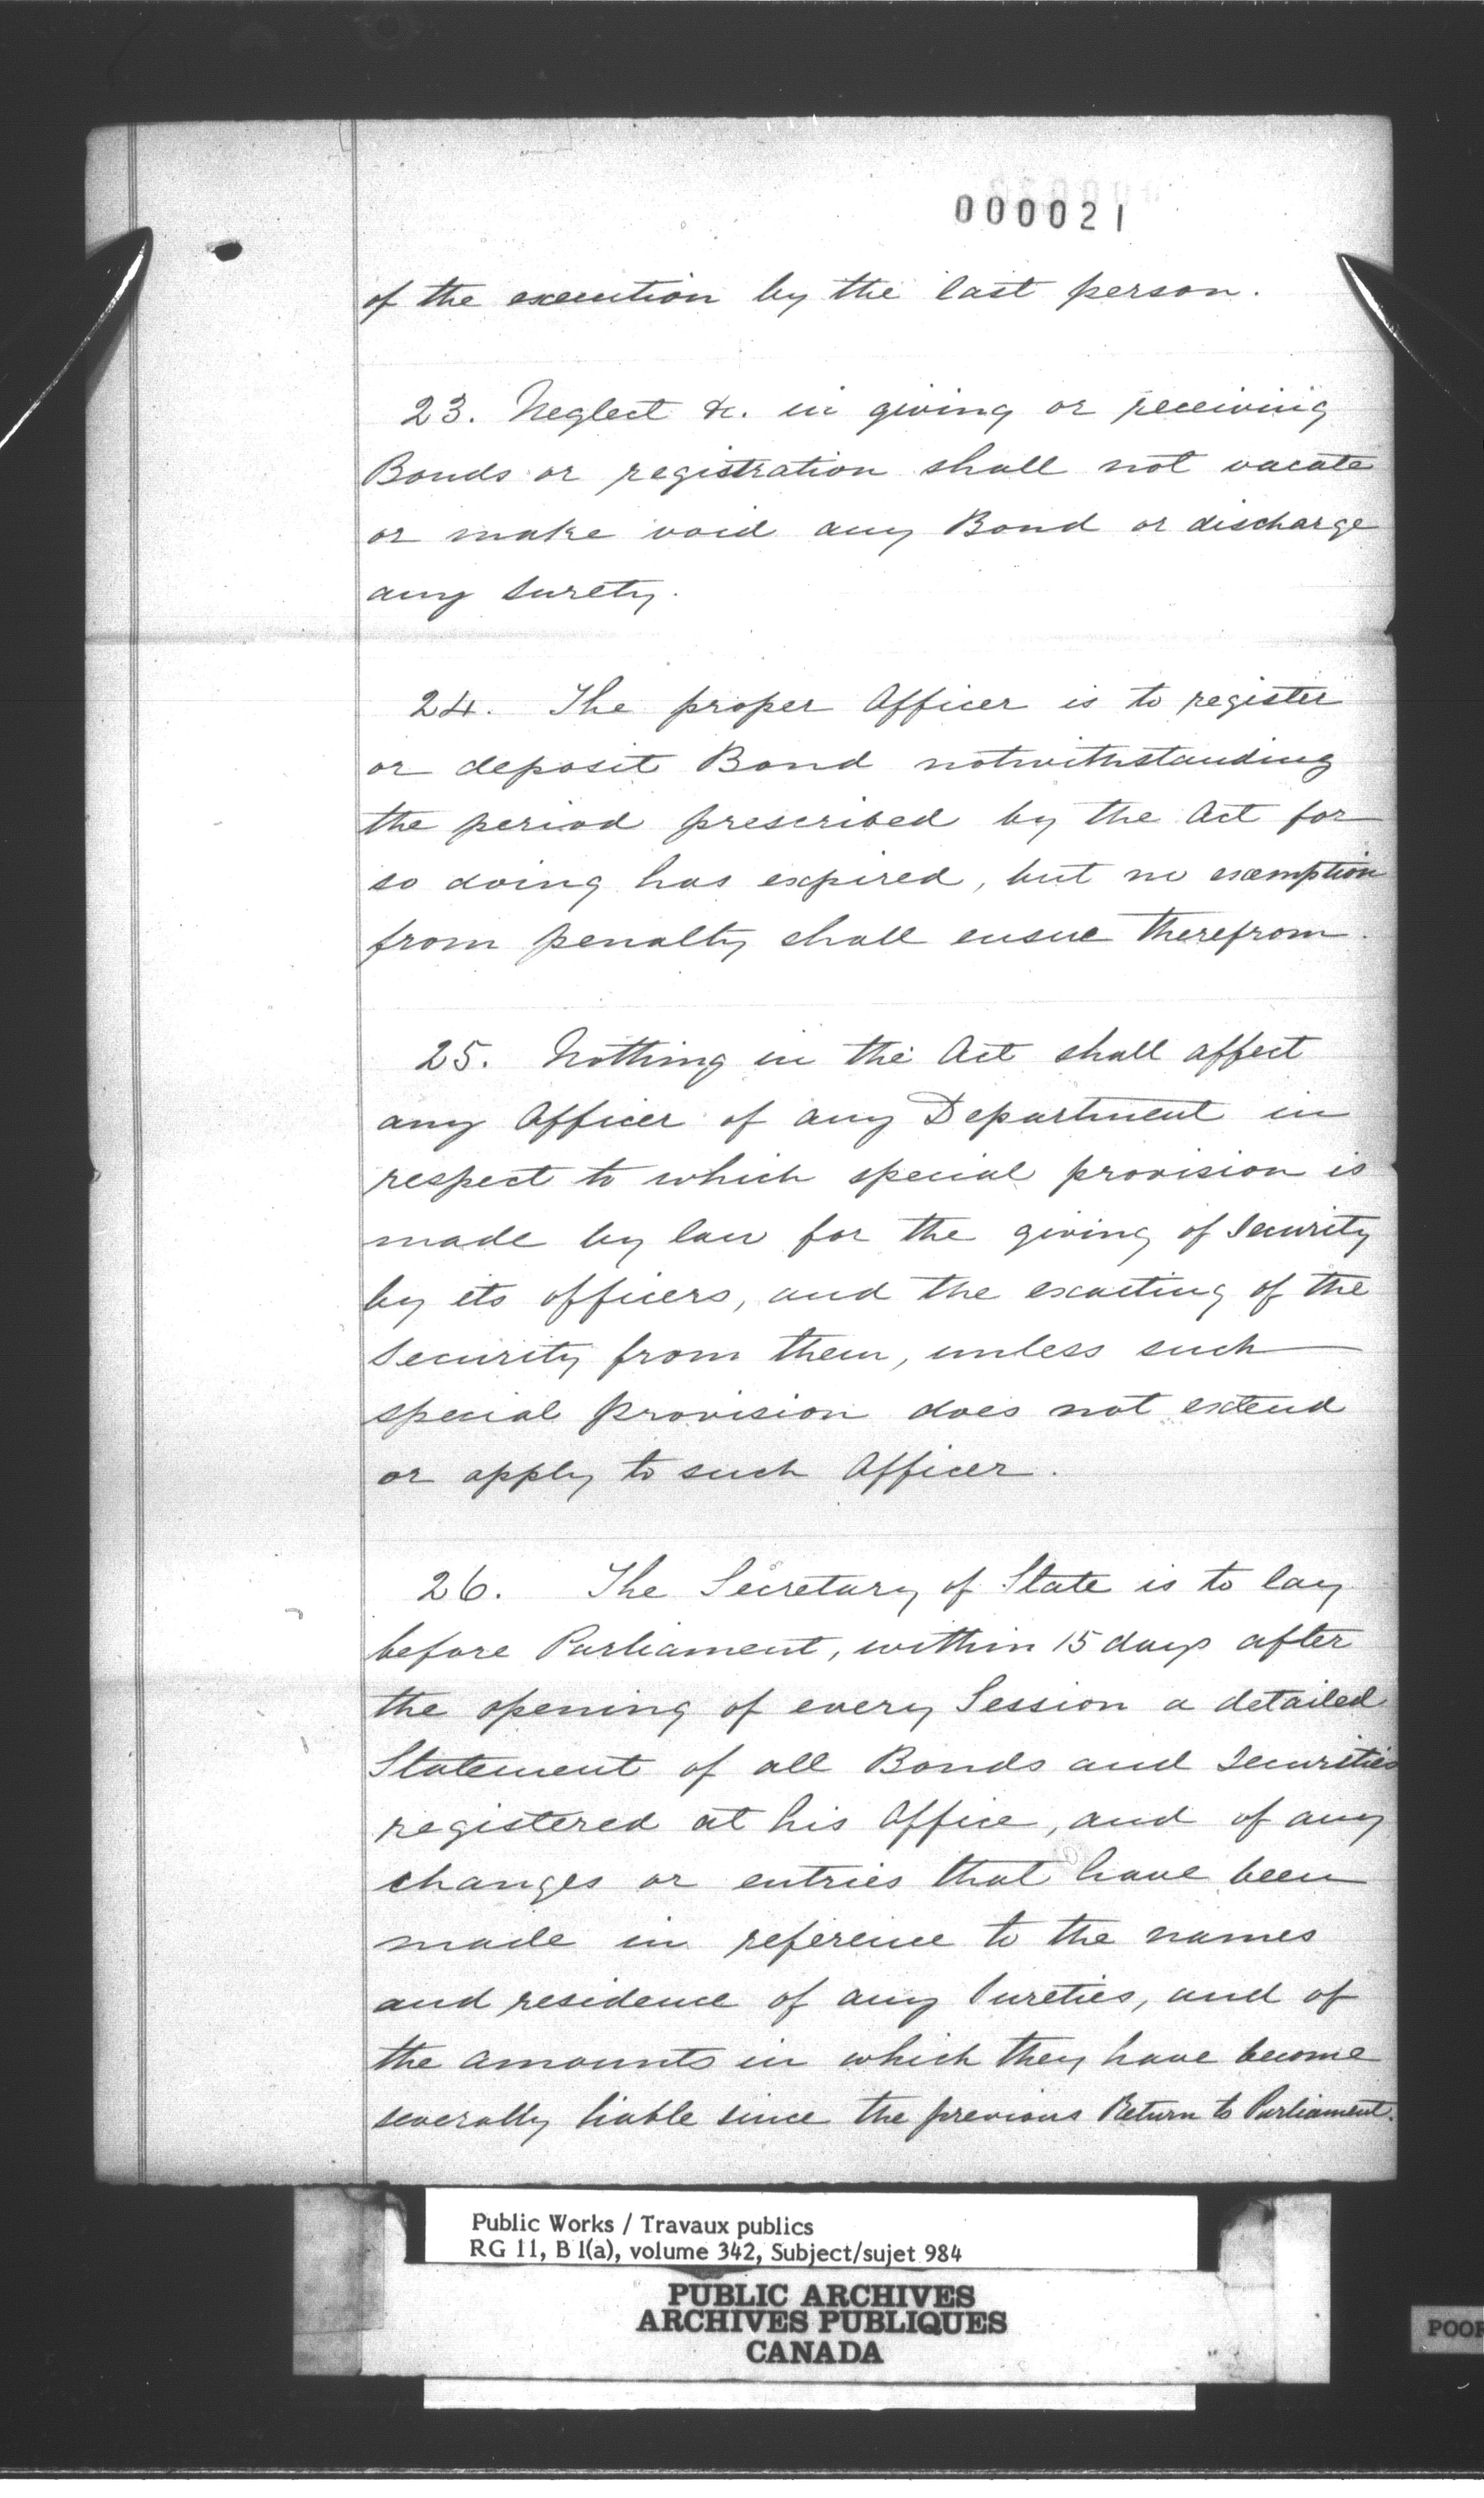 000021
of the execution by the last person.
23. Neglect &c. in giving or receiving
Bonds or registration shall not vacate
or make void any Bond or discharge
any Surety.
24. The proper Officer is to register
or deposit Bond notwithstanding
the period prescribed by the Act for
so doing has expired, but no exemption
from penalty shall ensue therefrom.
25. Nothing in the Act shall affect
any Officer of any Department in
respect to which special provision is
made by law for the giving of Security
by its officers, and the exacting of the
Security from them, unless such
special provision does not extend
or apply to such Officer.
26. The Secretary of State is to lay
before Parliament, within 15 days after
the opening of every Session a detailed
Statement of all Bonds and Securities
registered at his Office, and of any
changes or entries that have been
made in reference to the names
and residence of any Sureties, and of
the amounts in which they have become
severally liable since the previous Return to Parliament.
Public Works / Travaux publics
RG 11, B 1(a), volume 342, Subject/sujet 984
PUBLIC ARCHIVES
ARCHIVES PUBLIQUES
CANADA
POOR